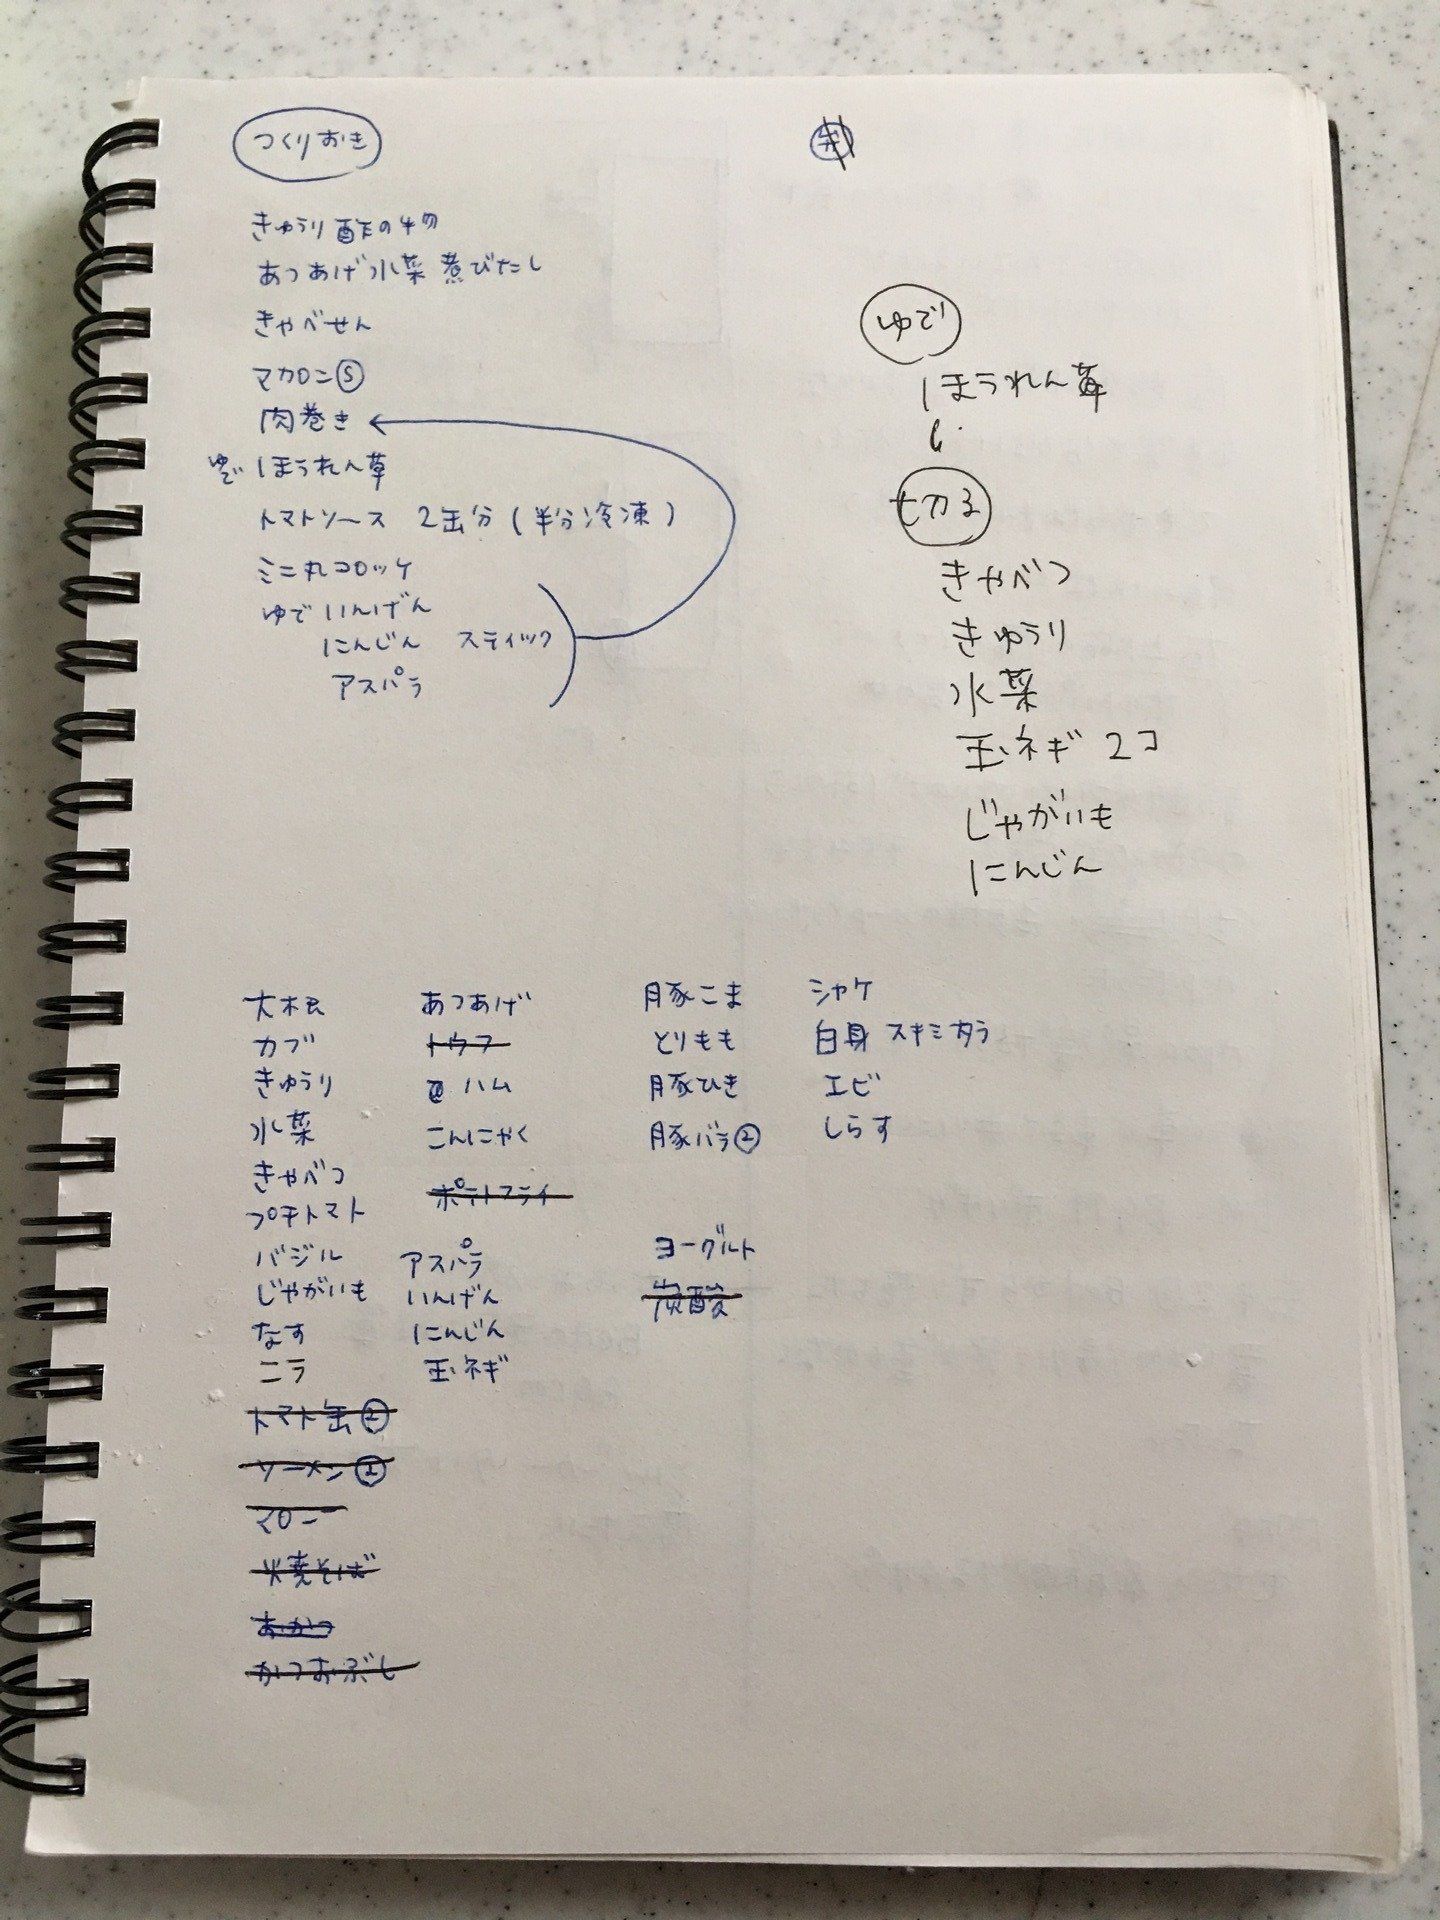 つくりおき
きゅうり酢の物
あつあげ水菜煮びたし
きゃべせん
マカロニⓢ
肉巻き
ゆで ほうれん草
トマトソース 2缶分(半分冷凍)
ミニ丸コロッケ
ゆでいんげん
にんじん スティック
アスパラ
ゆで
ほうれん草
切る
きゃべつ
きゅうり
水菜
玉ネギ 2コ
じゃがいも
にんじん
大根
カブ
きゅうり
水菜
きゃべつ
プチトマト
バジル
じゃがいも
なす
ニラ
トマト缶②
ソーメン②
マロニー
焼そば
おかつ
かつおぶし
あつあげ
トウフ
ハム
こんにゃく
ポテトフライ
アスパラ
いんげん
にんじん
玉ネギ
豚こま
とりもも
豚ひき
豚バラ②
ヨーグルト
炭酸
シャケ
白身 スキミタラ
エビ
しらす